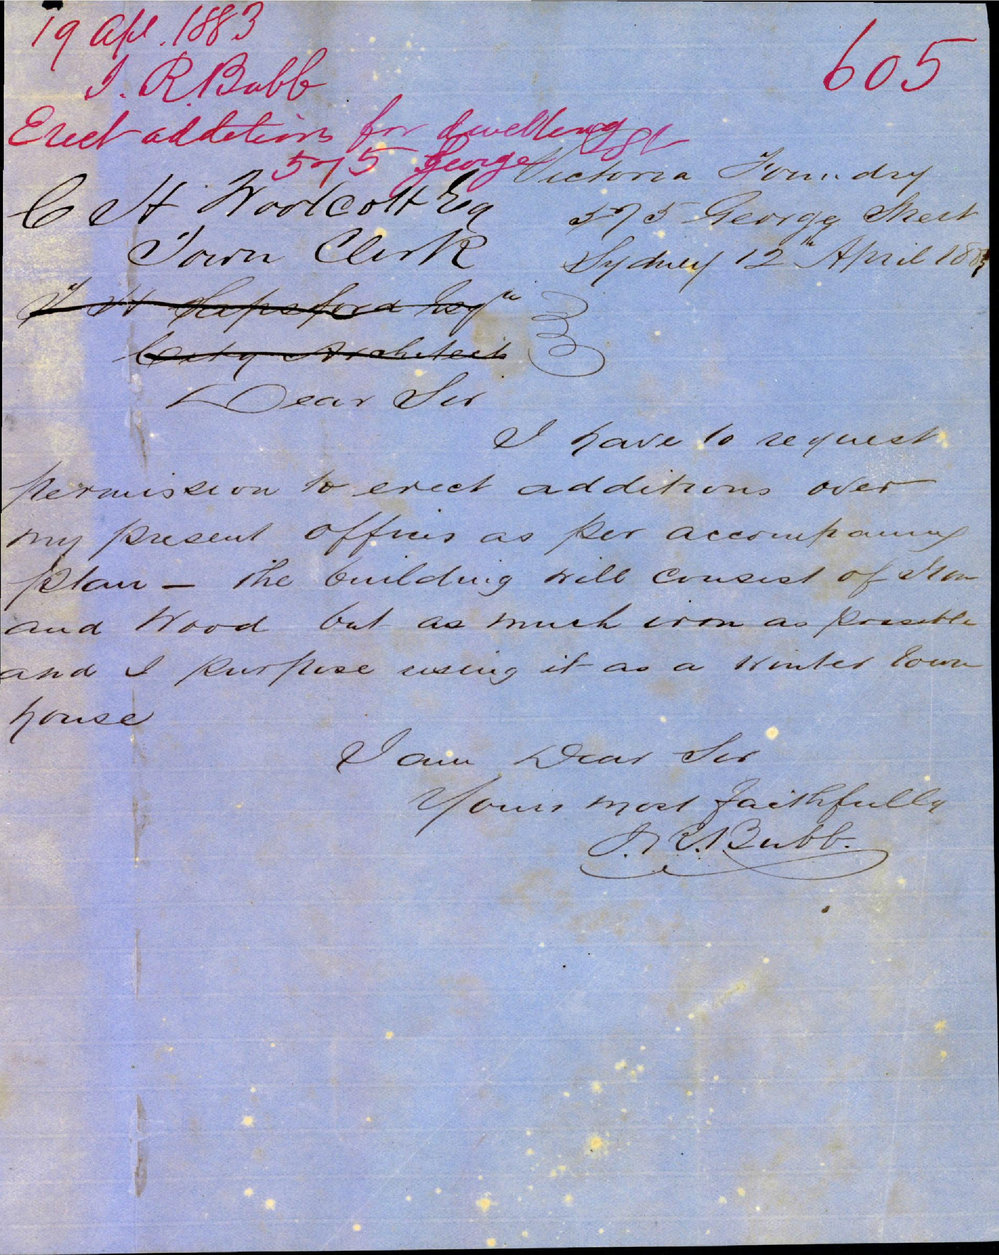 19 Apl. 1883
605
J. R. Bubb
Erect additions for dwelling
575 George St
Victoria Foundry
C H Woolcott Esq
575 George Street
Town Clerk
Sydney 12th April 1883
City Architect
Dear Sir
I have to request
permission to erect additions over
my present offices as per accompanying
plan – the building will consist of Iron
and Wood but as much iron as possible
and I purpose using it as a winter town
house
I am Dear Sir
Yours most faithfully
J. R. Bubb.